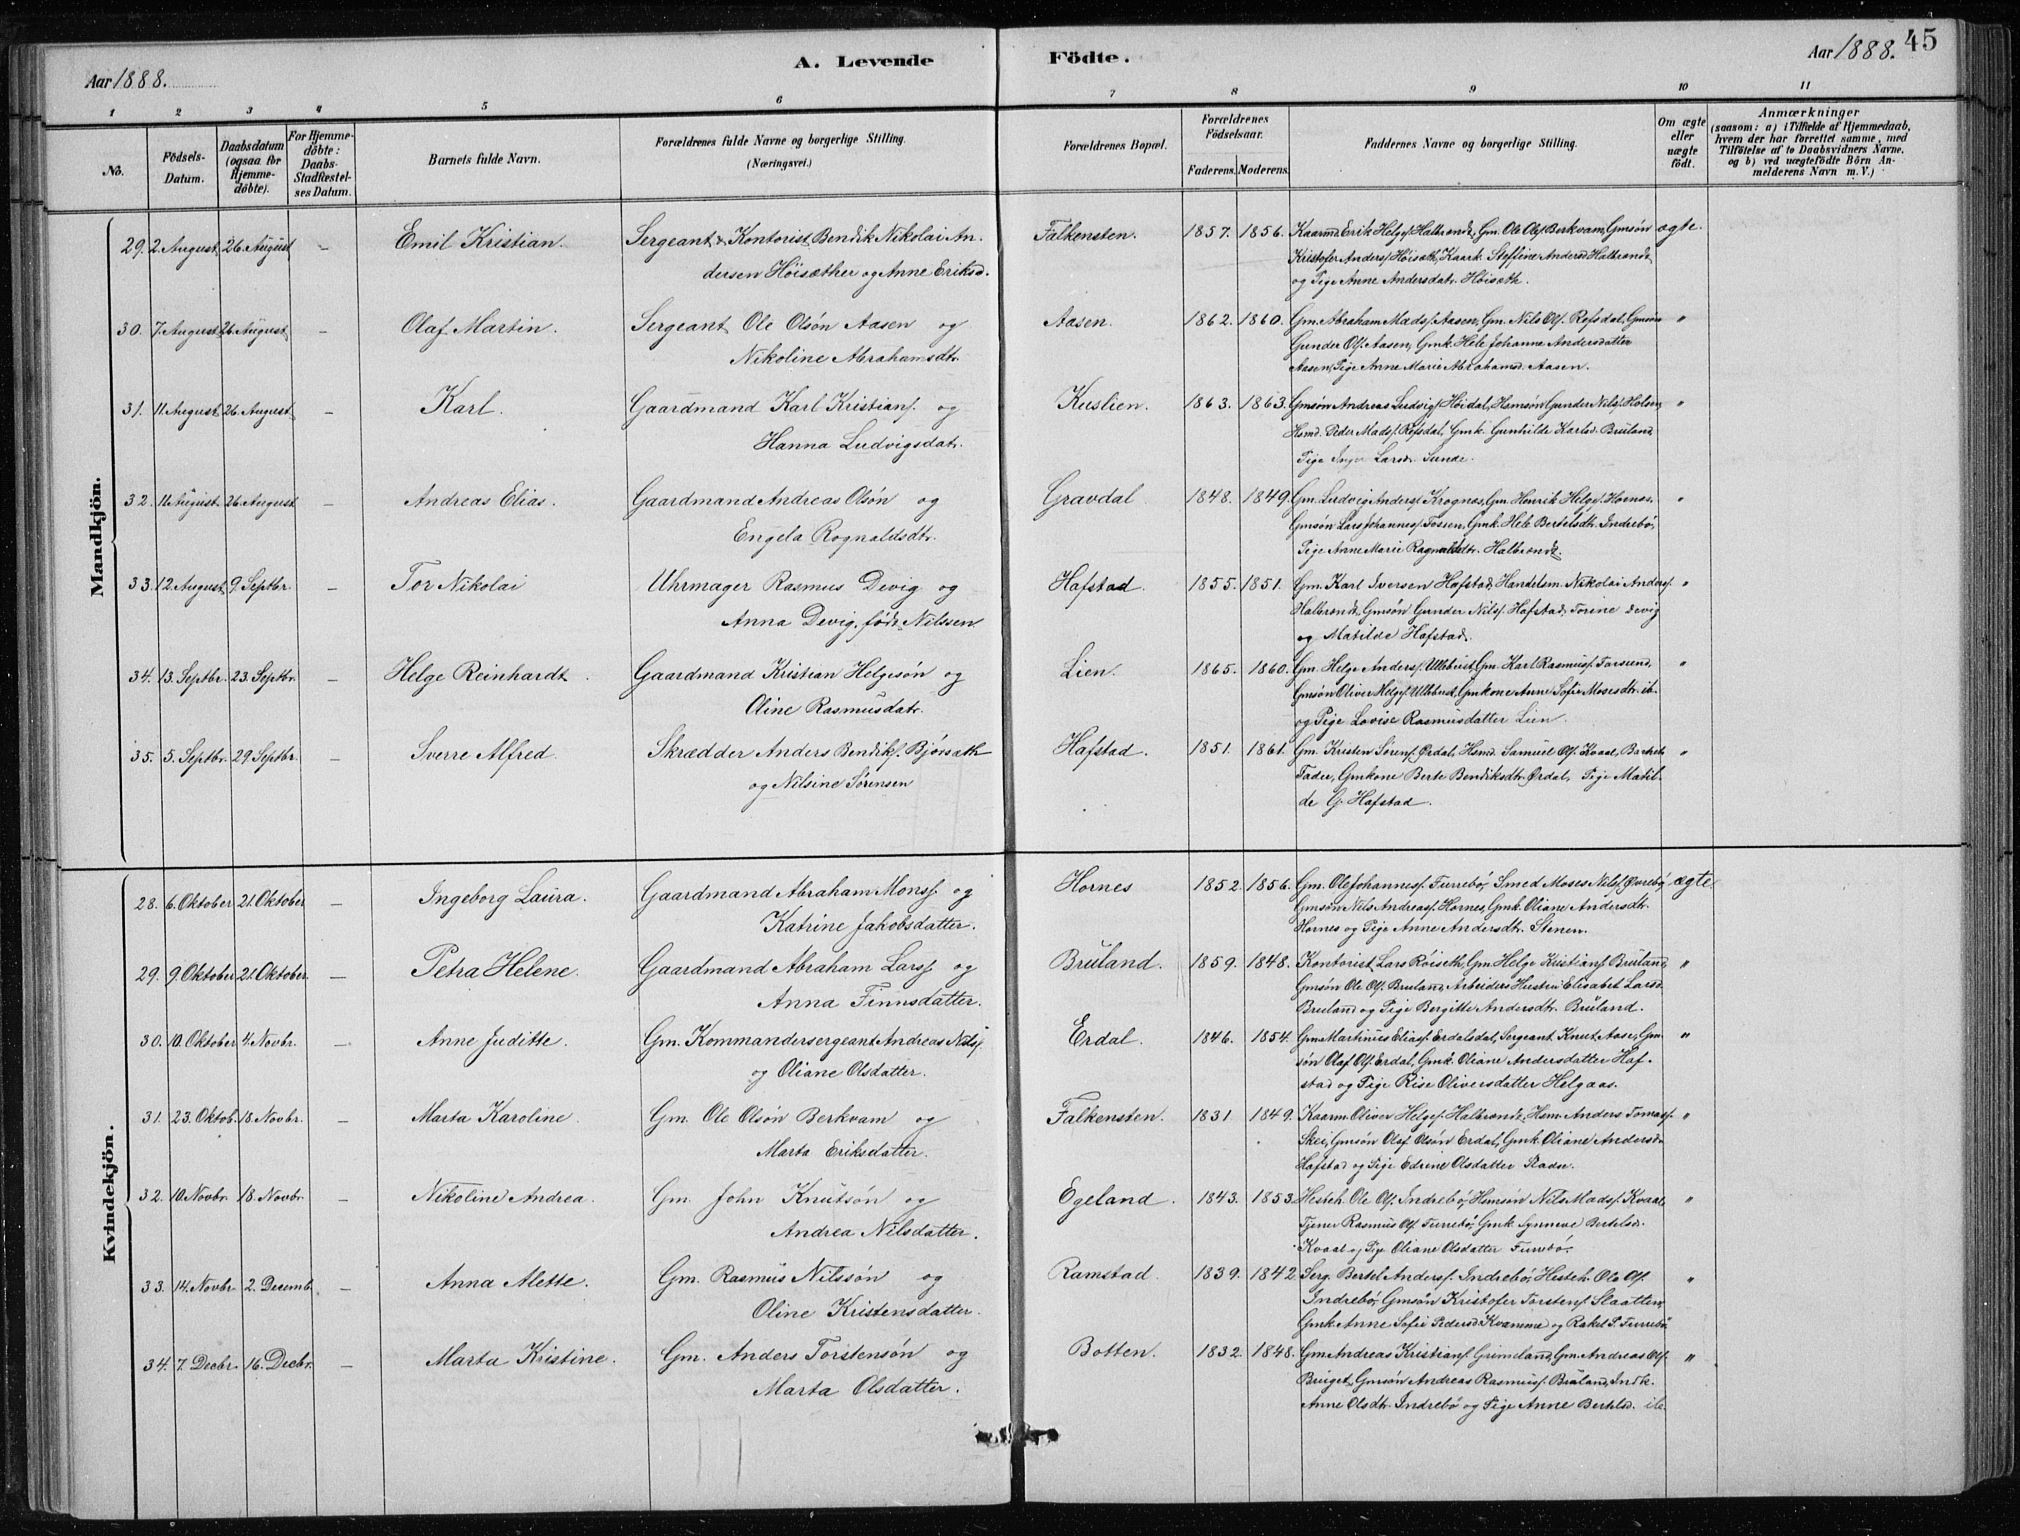 Aar 1888.
A. Levende
Födte.
Aar 1888.
45
1 2 3 4 5 6 7 8 9 10 11
No.
Födsels-Datum.
Daabsdatum (ogsaa for Hjemmedöbte).
For Hjemmedöbte: Daabs-Stadfæstelses Datum.
Barnets fulde Navn.
Forældrenes fulde Navne og borgerlige Stilling. (Næringsvei.)
Forældrenes Bopæl.
Forældrenes Födselsaar.
Faderens. Moderens.
Faddernes Navne og borgerlige Stilling.
Om ægte eller uægte födt.
Anmærkninger
(saasom: a) i Tilfælde af Hjemmedaab, hvem der har forrettet samme, med Tilföielse af to Daabsvidners Navne, og b) ved uægtefödte Börn Anmelderens Navn m. V.)
Mandkjön.
29. 2 August 26 August – Emil Kristian. Sergeant & Kontorist Bendik Nikolai An- Falkensten. 1857. 1856. Kaarmd Erik Helges. Halbrende, Gm. Ole Ols. Berkvam, Gmsøn ægte.
dersen Höisæther og Anne Eriksd. Kristofer Anders. Höisæth, Kaark. Steffine Andersd Halbrende
og Pige Anne Andersdatr. Höisæth.
30. 7 August 26 August – Olaf Martin. Sergeant Ole Olsön Aasen og Aasen. 1862. 1860. Gm. Abraham Mads. Aasen, Gm. Nils Ols. Refsdal, Gmsøn "
Nikoline Abrahamsdtr. Gunder Ols. Aasen, Gmk. Hele Johanne Andersdatter
Aasen, Pige Anne Marie Abrahamsd. Aasen.
31. 11 August 26 August – Karl. Gaardmand Karl Kristians. og Kuslien. 1863. 1863. Gmsøn Andreas Ludvigs. Höidal, Hsmsøn Gunder Nils. Holsen, "
Hanna Ludvigsdatr. Hsmd. Peder Mads. Refsdal, Gmk. Gunhilde Karlsd. Bruland,
Pige Inger Larsd. Sunde.
32. 11 August 26 August – Andreas Elias. Gaardmand Andreas Olsön og Gravdal. 1848. 1849. Gm. Ludvig Anders. Krognæs, Gm. Henrik Helges. Hornes, "
Engela Rognaldsdtr. Gmsøn Lars Johannes. Fossen, Gmk. Hele Bertelsdtr. Indrebö,
Pige Anne Marie Ragnaldsdtr. Halbrende.
33. 12 August 9 Septbr. – Tor Nikolai Uhrmager Rasmus Devig og Hafstad. 1855. 1851. Gm. Karl Iversen Hafstad, Handelsm. Nikolai Anders. "
Anna Devig, født Nilssen Halbrende, Gmsøn Gunder Nils. Hafstad, Torine Devig
og Matilde Hafstad.
34. 13. Septbr. 23. Septbr. – Helge Reinhardt. Gaardmand Kristian Helgesön og Lien. 1865. 1860. Gm. Helge Anders. Ulltveit, Gm. Karl Rasmus. Farsund, "
Oline Rasmusdatr. Gmsøn Oliver Helges. Ulltveit, Gmkone Anne Sofie Mosesdtr. ib.
og Pige Lovise Rasmusdatter Lien.
35. 5. Septbr. 29. Septbr. – Sverre Alfred. Skrædder Anders Bendiks. Bjørsæth Hafstad. 1851. 1861. Gm. Kristen Sørens. Ørdal, Hsmd. Samuel Ols. Kvaal, Barnets "
og Nilsine Sørensen Fader, Gmkone Berte Bendiksdtr. Ørdal, Pige Matil-
de G. Hafstad.
Kvindekjön.
28. 6 Oktober 21 Oktober – Ingeborg Laura. Gaardmand Abraham Monss. og Hornes 1852. 1856. Gm. Ole Johannes. Furrebö, Smed Moses Nils. Øvrebö, ægte.
Katrine Jakobsdatter. Gmsøn Nils Andreas. Hornes, Gmk. Oliane Andersdtr.
Hornes og Pige Anne Andersdtr. Stenen.
29. 9. Oktober 21 Oktober. – Petra Helene. Gaardmand Abraham Larss. og Bruland. 1859. 1848. Kontorist Lars Röiseth, Gm. Helge Kristians. Bruland, "
Anna Finnsdatter. Gmsøn Ole Ols. Bruland, Arbeiders Hustru Elisabet Larsd.
Bruland og Pige Bergitte Andersdtr. Bruland.
30. 10. Oktober 4. Novbr. – Anne Juditte. Gm. Kommandersergeant Andreas Nils. Erdal. 1846. 1854. Gm. Martinus Elias. Erdalsdal, Sergeant Knut Aase, Gm- "
og Oliane Olsdatter. søn Olaf Ols. Erdal, Gmk. Oliane Andersdatter Haf-
stad og Pige Rise Oliversdatter Helgaas.
31. 23. Oktob. 18. Novbr. – Marta Karoline. Gm. Ole Olsön Berkvam og Falkensten. 1831. 1849. Kaarm. Oliver Helges. Halbrende, Hsm. Anders Tomas. "
Marta Eriksdatter. Skei, Gmsøn Olaf Olsøn Erdal, Gmk. Oliane Andersd.
Hafstad og Pige Edrene Olsdatter
32. 10. Novbr. 18. Novbr. – Nikoline Andrea. Gm. John Knutsön og Egeland. 1843. 1853. Hesteh. Ole Ols. Indrebö, Hsmsøn Nils Mads. Kvaal, "
Andrea Nilsdatter. Tjener Rasmus Ols. Furrebö, Gmk. Synneve Bertelsd.
Kvaal og Pige Oliane Olsdatter Furrebö.
33. 14. Novbr. 2. Decemb. – Anna Alette. Gm. Rasmus Nilssön og Ramstad. 1839. 1842 Serg. Bertel Anders. Indrebö, Hesteh. Ole Ols. "
Oline Kristensdatter. Indrebö, Gmsøn Kristofer Torstens. Slaatten,
Gmk. Anne Sofie Pedersd. Kvamme og Rakel P. Furrebö.
34. 7. Decbr. 16. Decbr. – Marta Kristine. Gm. Anders Torstensön og Botten. 1832. 1848. Gm. Andreas Kristians. Grimeland, Gm. Andreas Ols. "
Marta Olsdatter. Bruget, Gmsøn Andreas Rasmuss. Bruland, Indk.
Anne Olsdtr. Indrebö og Pige Anne Bertelsd. ib.